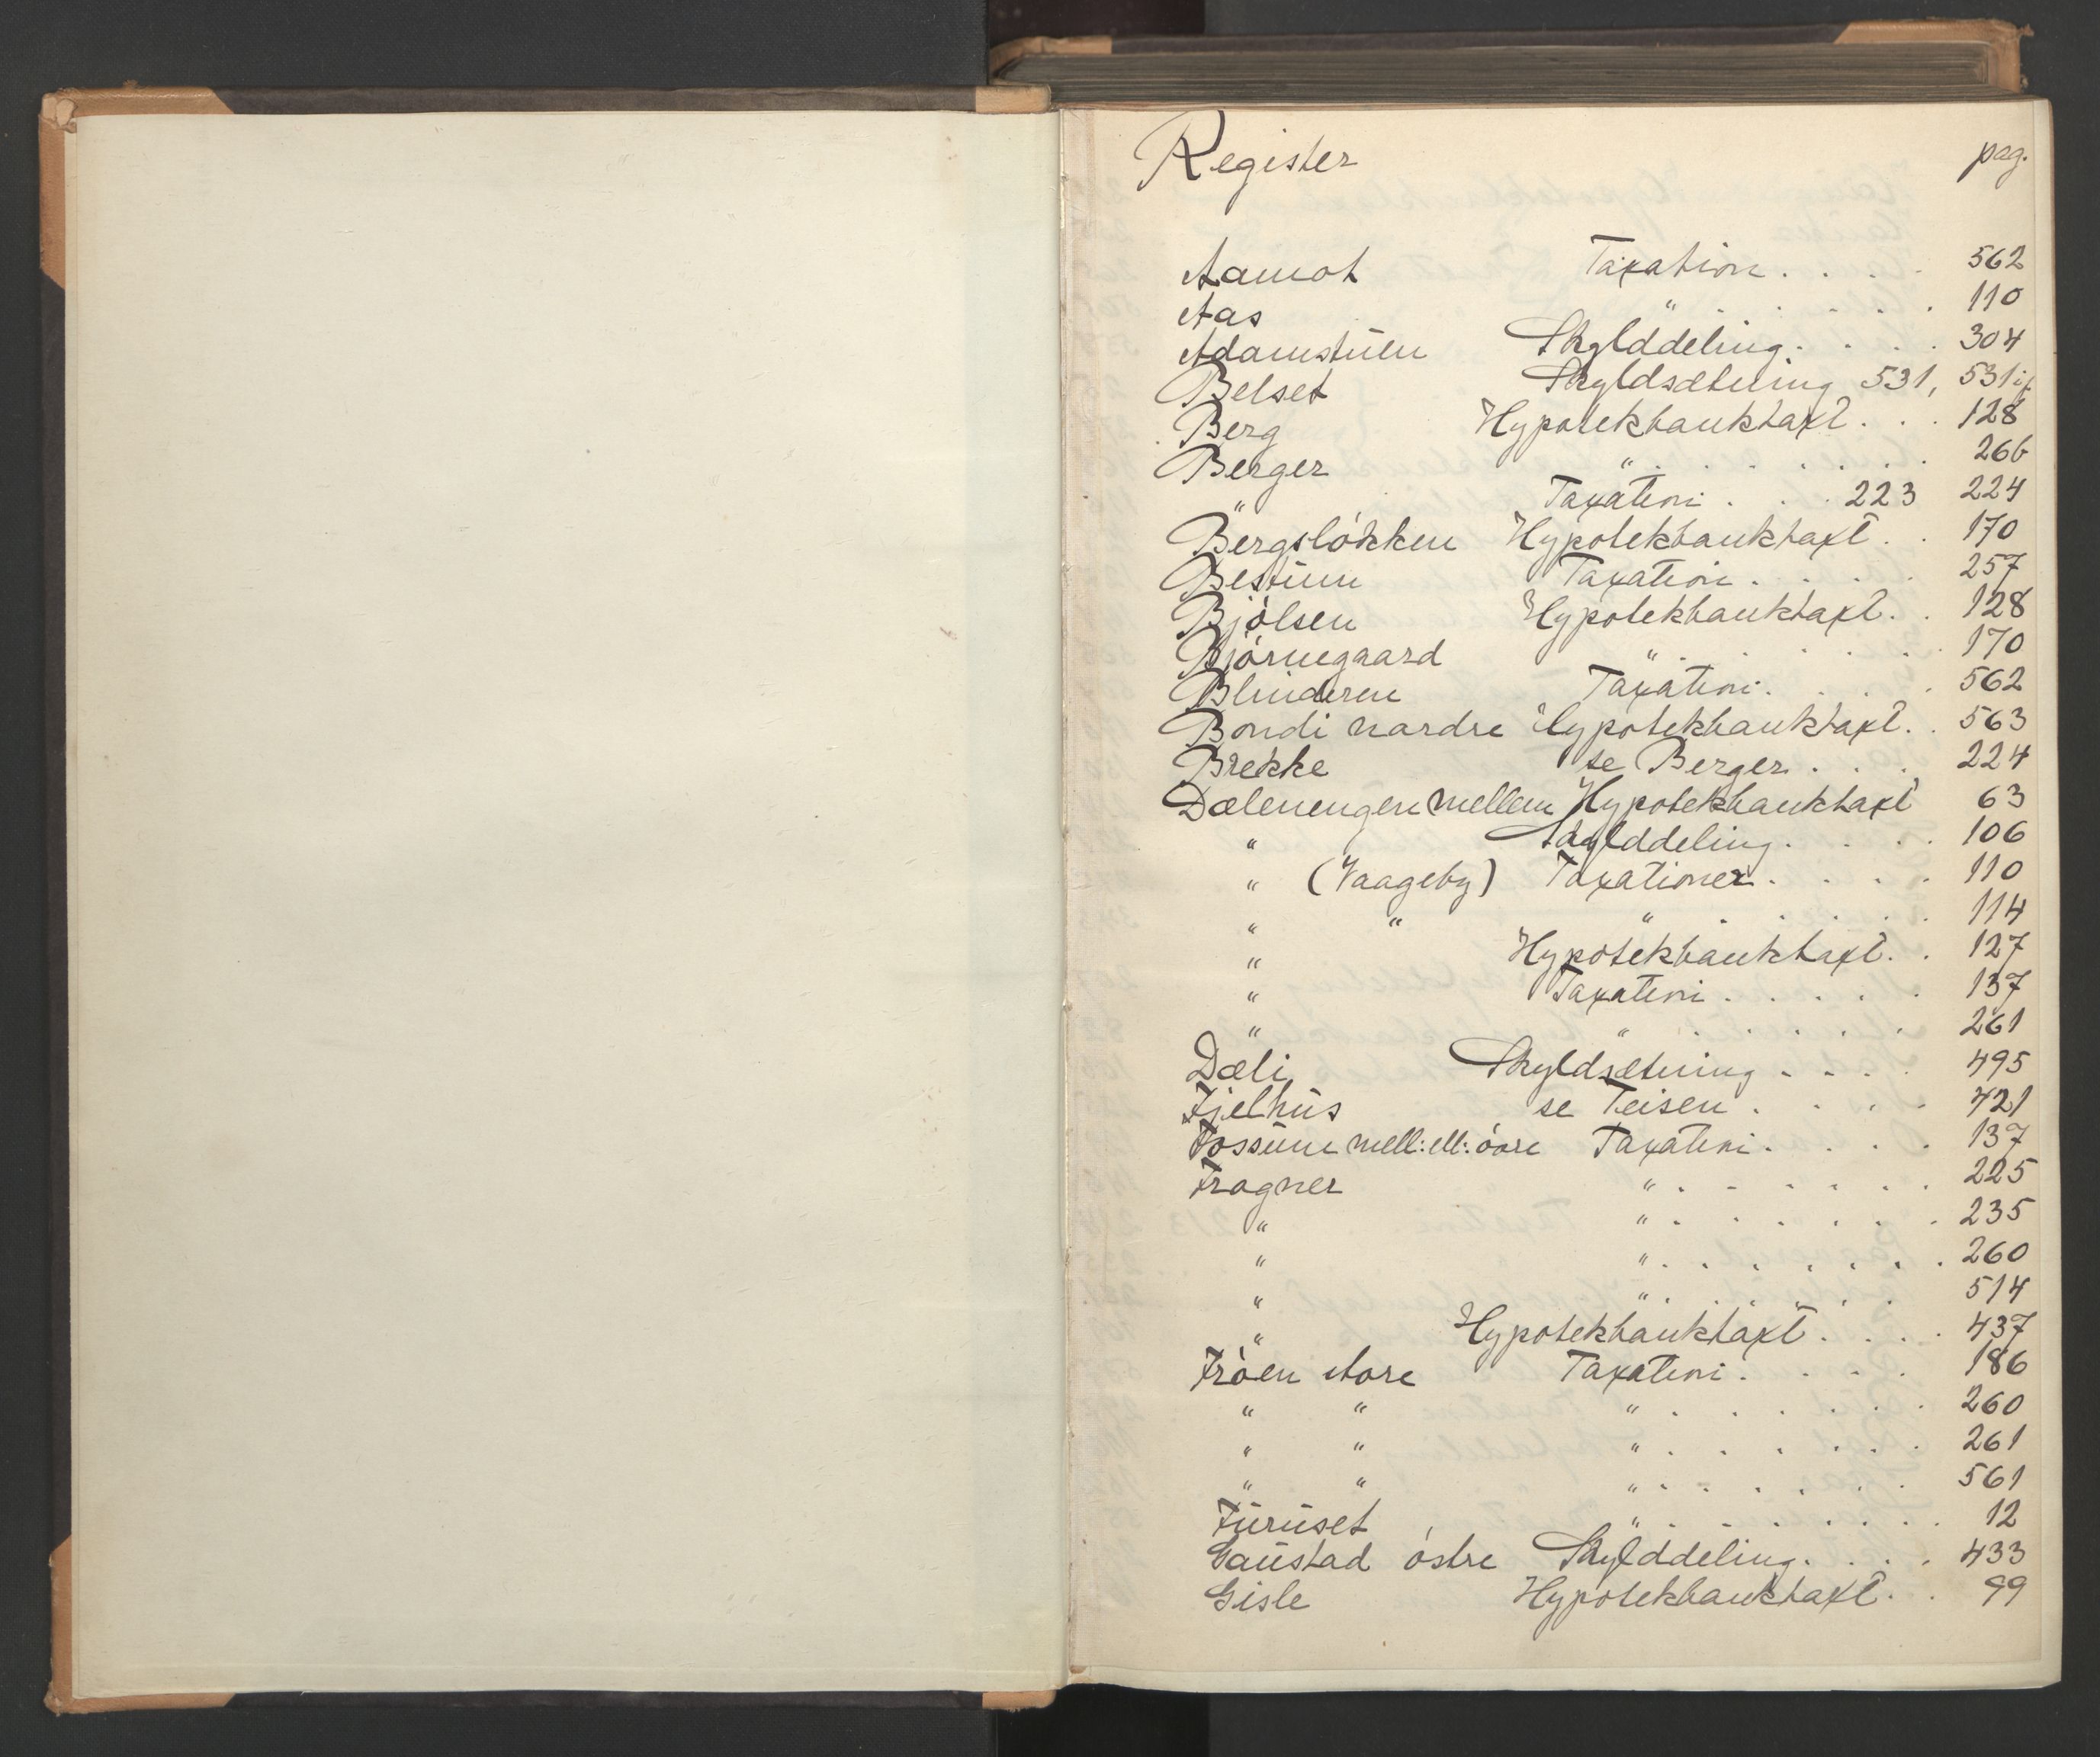 Register pag.
Aamot Taxation. . . . 562
Aas " . . . . . . . 110
Adamstuen Skylddeling. . . . 304
Belset Skyldsætning 531, 531
Berg Hypotekbanktaxt. . . 128
Berger " . . . . . . . 266
" Taxation . . . 223 224
Bergsløkken Hypotekbanktaxt. . 170
Bestum Taxation . . . . 257
Bjølsen Hypotekbanktaxt. . 128
Bjørnegaard " . . . . . . . 170
Blinderen Taxation. . . . . 562
Bondi nordre Hypotekbanktaxt. . 563
Brekke se Berger . . . 224
Dælenengen mellem Hypotekbanktaxt 63
" Skylddeling. . . . 106
" (Vaageby) Taxationer. . . . . 110
" " " . . . . . . 114
" Hypotekbanktaxt. . 127
" Taxation . . . . . 137
" " . . . . . . 261
Dæli Skyldsætning . . . . 495
Fjelhus se Teisen . . . . 421
Fossum mell: ell: øvre Taxation. . . . . 137
Fragner " . . . . . . . 225
" " . . . . . . . 235
" " . . . . . . . 260
" " . . . . . . 514
" Hypotekbanktaxt. . . . 437
Frøen store Taxation. . . . . 186
" " " . . . . . . . 260
" " " . . . . . . . 261
" " " . . . . . . . 561
Furuset " . . . . . . . 12
Gaustad østre Skylddeling. . . . 433
Gisle Hypotekbanktaxt. . 99